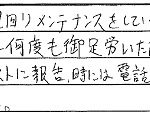 回りメンテナンスをしてい
何度も御足労いた
ストに報告、時には電話